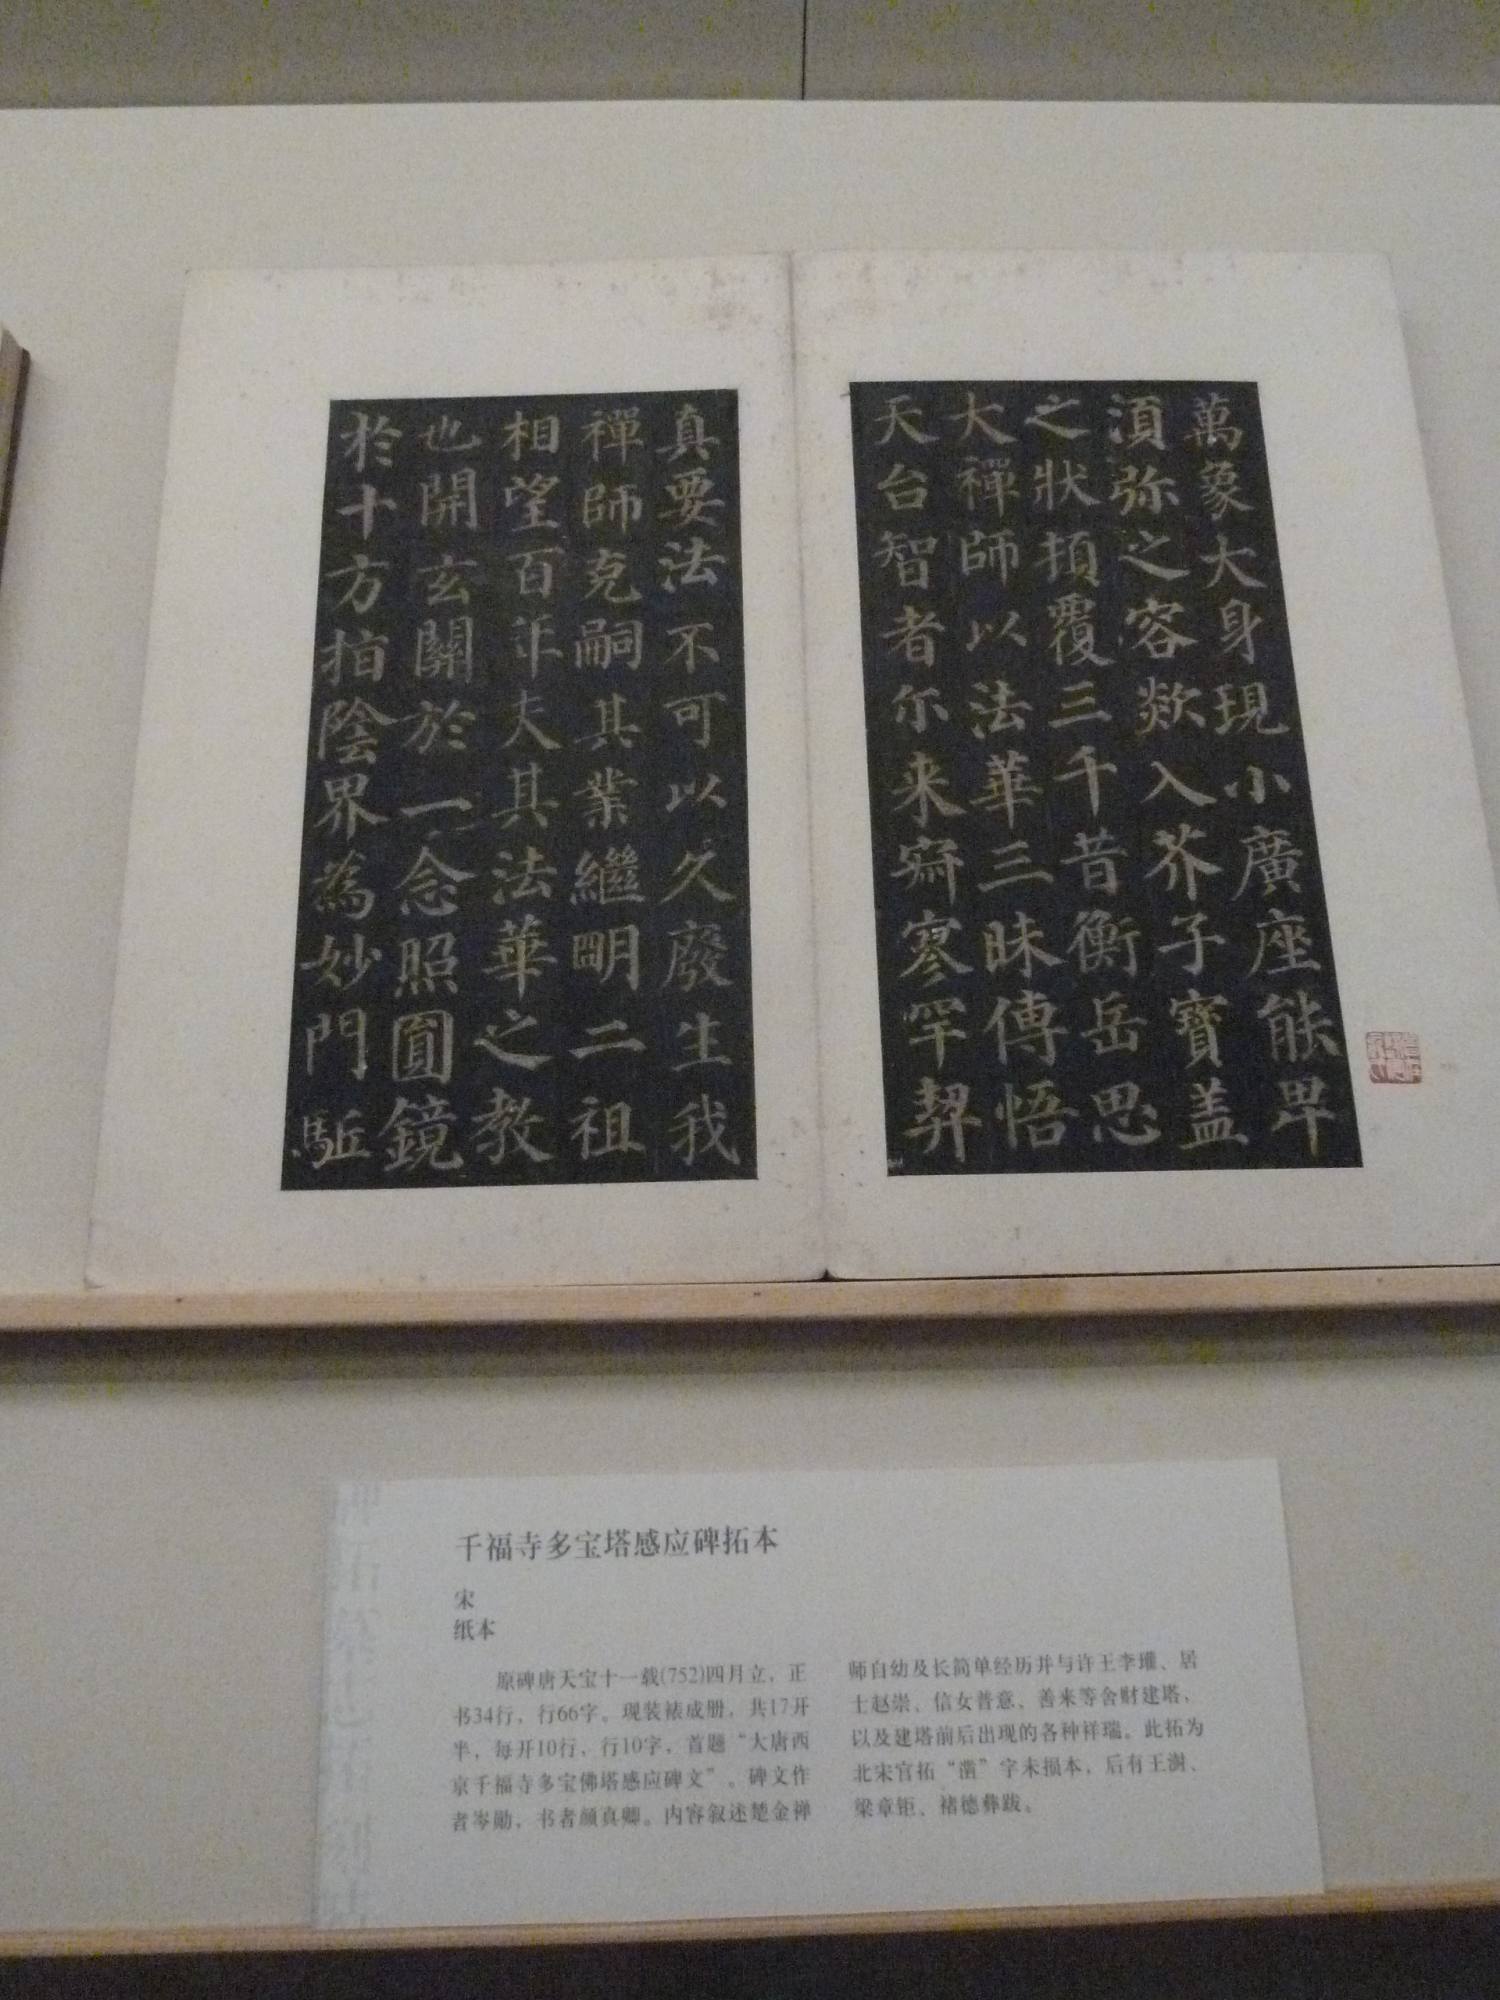 萬象大身現小廣座能卑
湏弥之容欻入芥子寶盖
之狀頓覆三千昔衡岳思
大禪師以法華三昧傳悟
天台智者尓来寂寥罕契
真要法不可以久廢生我
禪師克嗣其業繼明二祖
相望百年夫其法華之教
也開玄關於一念照圓鏡
於十方指陰界為妙門駈
千福寺多宝塔感应碑拓本
宋
纸本
原碑唐天宝十一载(752)四月立，正
书34行，行66字。现装裱成册，共17开
半，每开10行，行10字，首题“大唐西
京千福寺多宝佛塔感应碑文”。碑文作
者岑勋，书者颜真卿。内容叙述楚金禅
师自幼及长简单经历并与许王李瓘、居
士赵崇、信女普意、善来等舍财建塔，
以及建塔前后出现的各种祥瑞。此拓为
北宋官拓“凿”字未损本，后有王澍、
梁章钜、褚德彝跋。